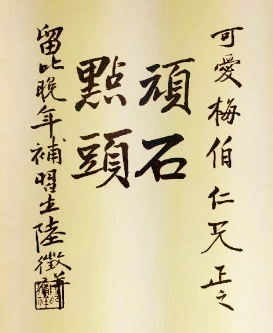 可愛梅伯仁兄正之
頑石
點頭
留此晚年補習生陸徵祥